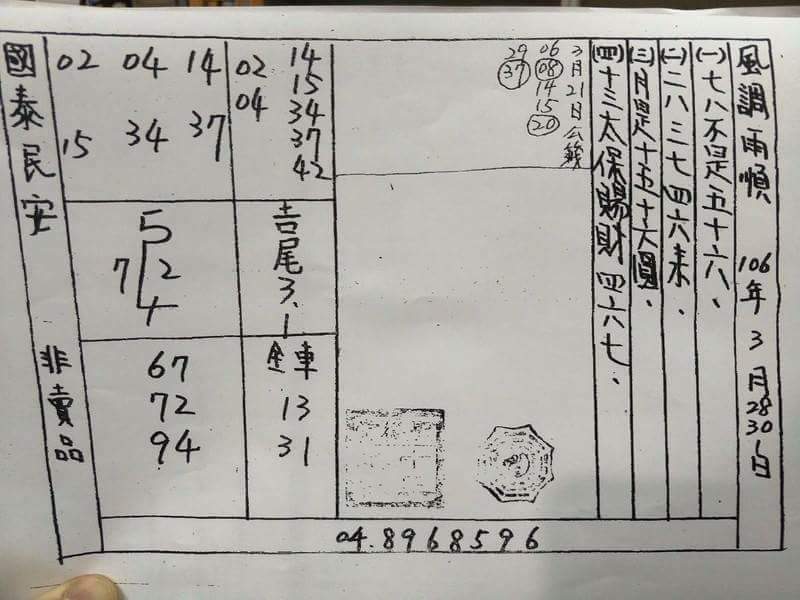 風調雨順 106年3月28 30 1日
(一)七八不是五十六、
(二)二八三七四六來、
(三)月是十五十六圓、
(四)十三太保賜財四六七、
3月21日公籤
06
08
14
15
20
29
37
14
15
34
37
42
02
04
吉尾3.1
全車
13
31
02 04 14
15 34 37
5
7 2
4
67
72
94
國泰民安 非賣品
04.8968596